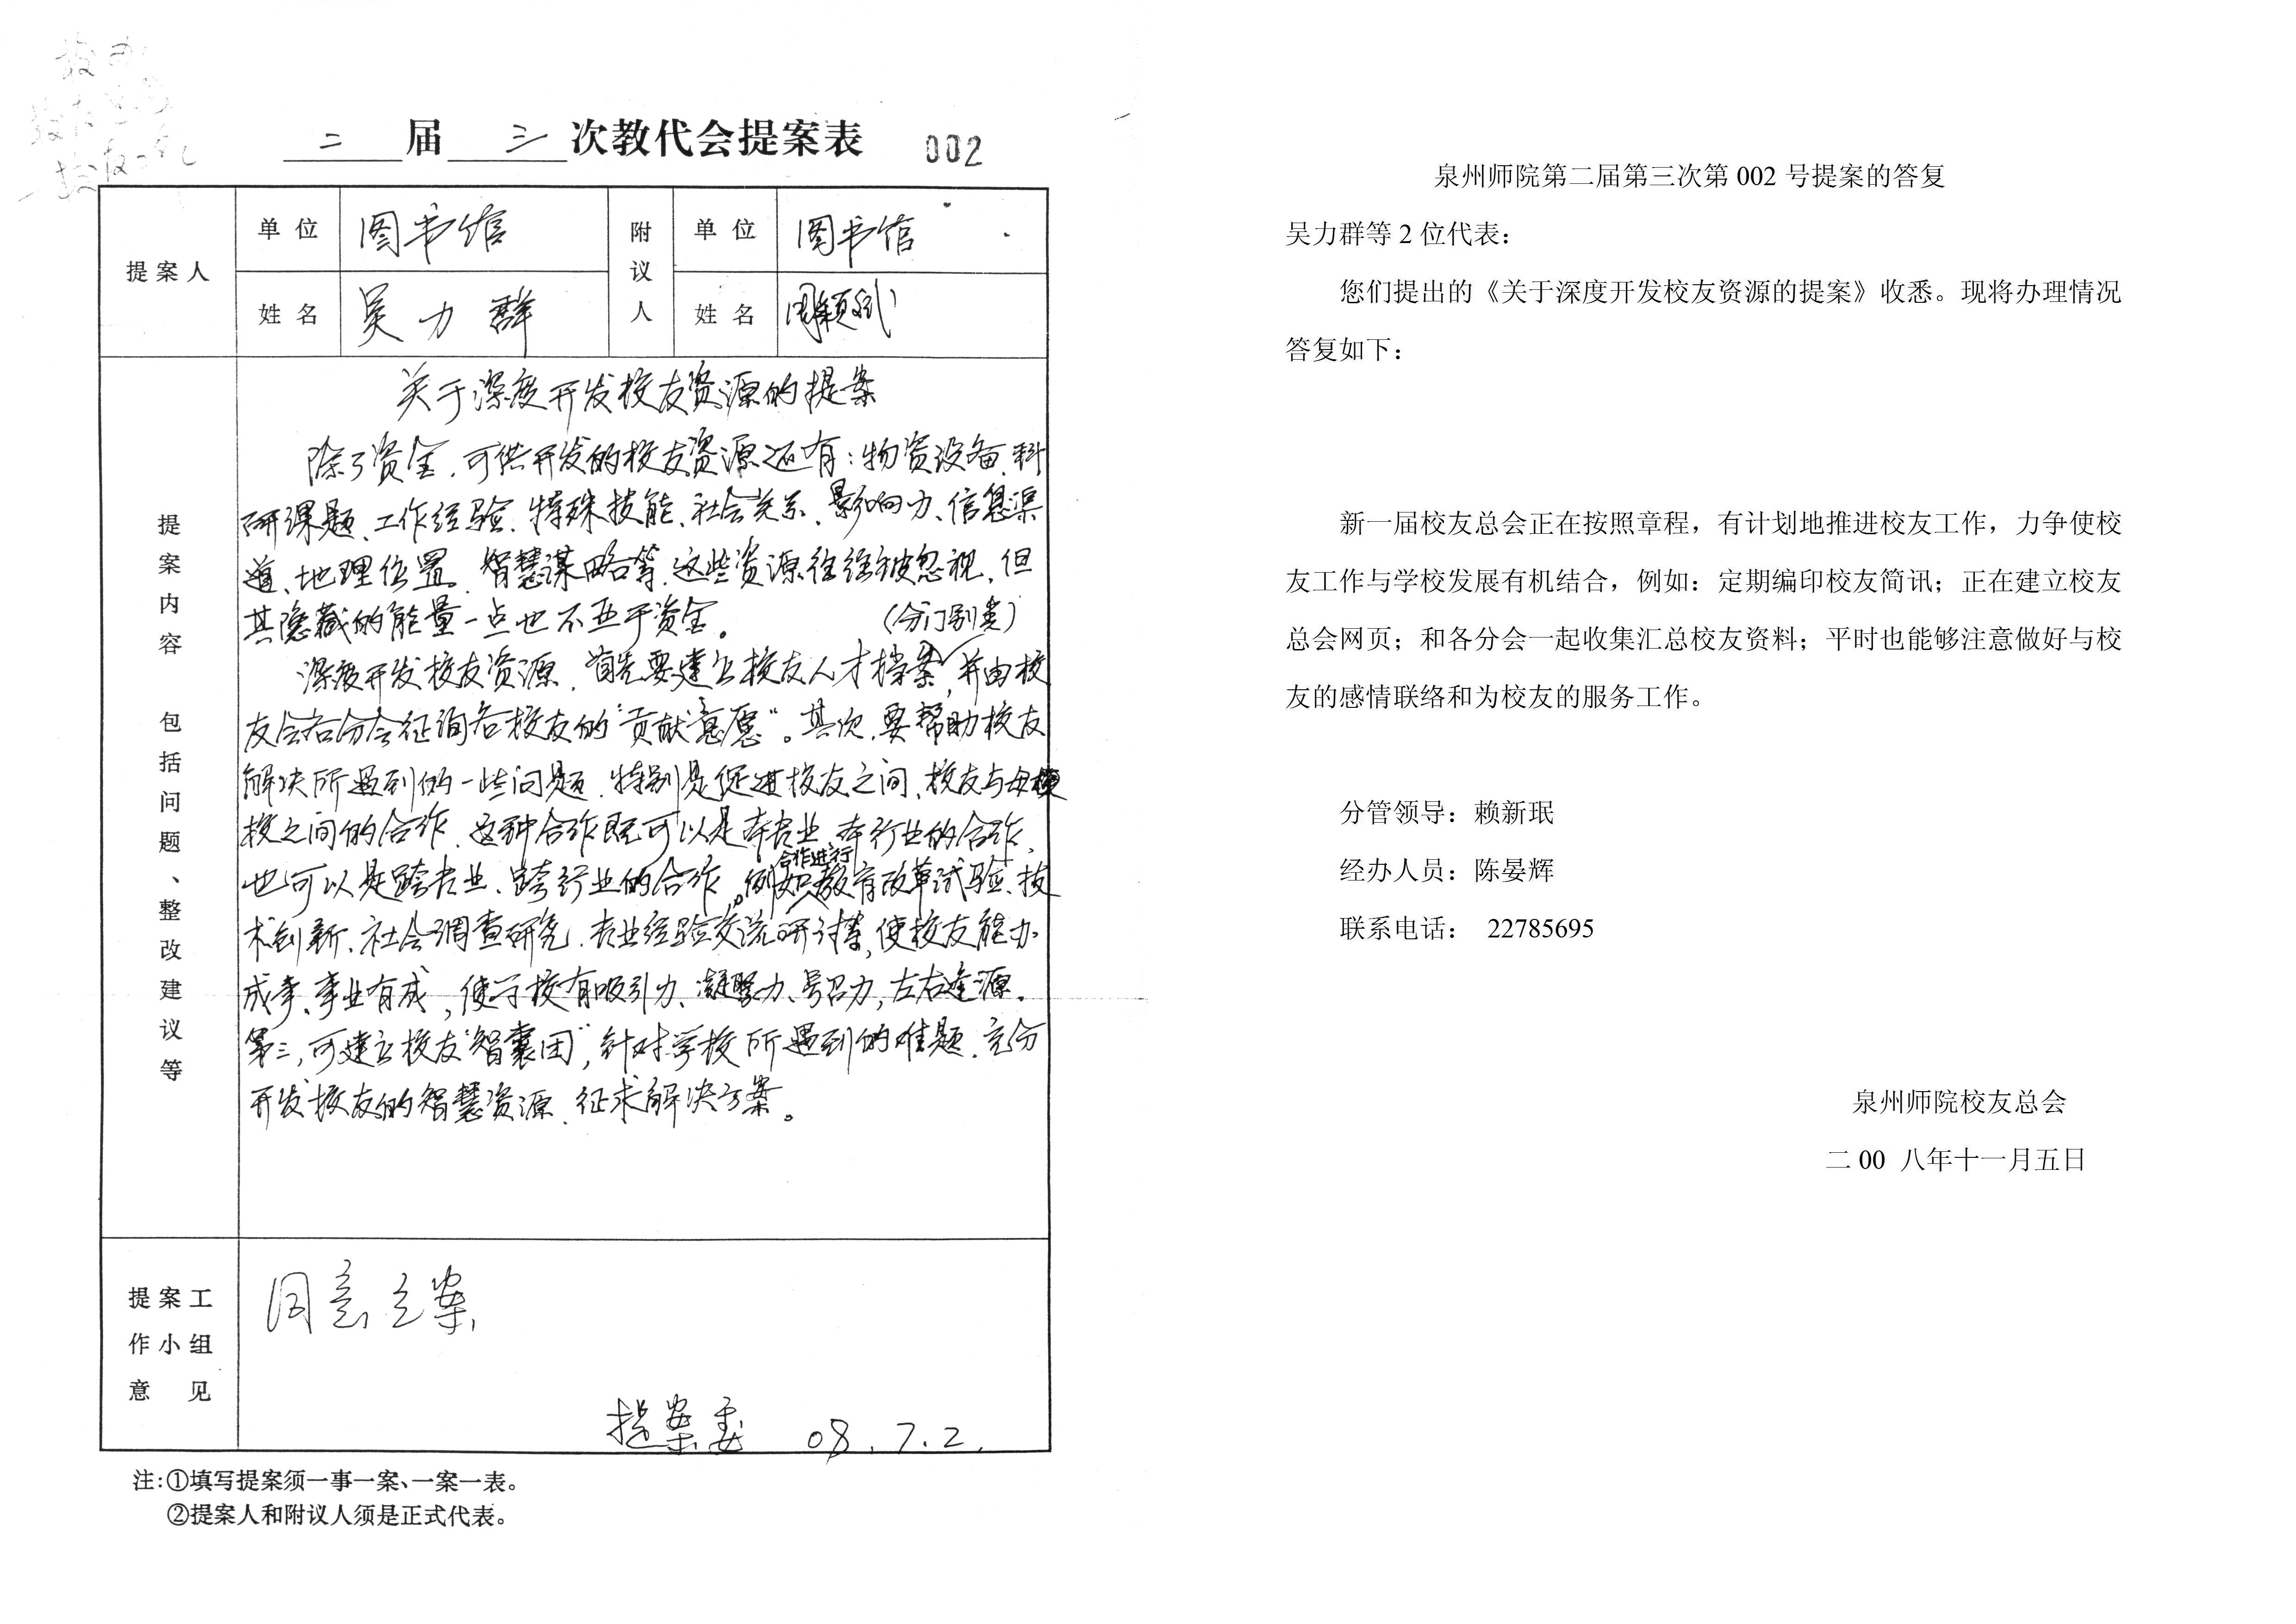 二 届 三 次教代会提案表 002
提案人
单位 图书馆
姓名 吴力群
附议人
单位 图书馆
姓名 周颖斌
提案内容 包括问题、整改建议等
关于深度开发校友资源的提案
除了资金,可供开发的校友资源还有:物资设备、科
研课题、工作经验、特殊技能、社会关系、影响力、信息渠
道、地理位置、智慧谋略等,这些资源往往被忽视,但
其隐藏的能量一点也不亚于资金。
(分门别类)
深度开发校友资源,首先要建立校友人才档案,并由校
友会各分会征询各校友的“贡献意愿”。其次,要帮助校友
解决所遇到的一些问题,特别是促进校友之间、校友与母
校之间的合作,这种合作既可以是本专业、本行业的合作,
也可以是跨专业、跨行业的合作。例如合作进行教育改革试验、技
术创新、社会调查研究、专业经验交流研讨等,使校友能办
成事、事业有成,使学校有吸引力、凝聚力、号召力,左右逢源。
第三,可建立校友“智囊团”,针对学校所遇到的难题,充分
开发校友的智慧资源,征求解决方案。
提案工
作小组
意 见
同意立案
提案委 08.7.2.
注:①填写提案须一事一案、一案一表。
②提案人和附议人须是正式代表。
泉州师院第二届第三次第 002 号提案的答复
吴力群等 2 位代表:
您们提出的《关于深度开发校友资源的提案》收悉。现将办理情况
答复如下:
新一届校友总会正在按照章程,有计划地推进校友工作,力争使校
友工作与学校发展有机结合,例如:定期编印校友简讯;正在建立校友
总会网页;和各分会一起收集汇总校友资料;平时也能够注意做好与校
友的感情联络和为校友的服务工作。
分管领导:赖新珉
经办人员:陈晏辉
联系电话: 22785695
泉州师院校友总会
二 00 八年十一月五日